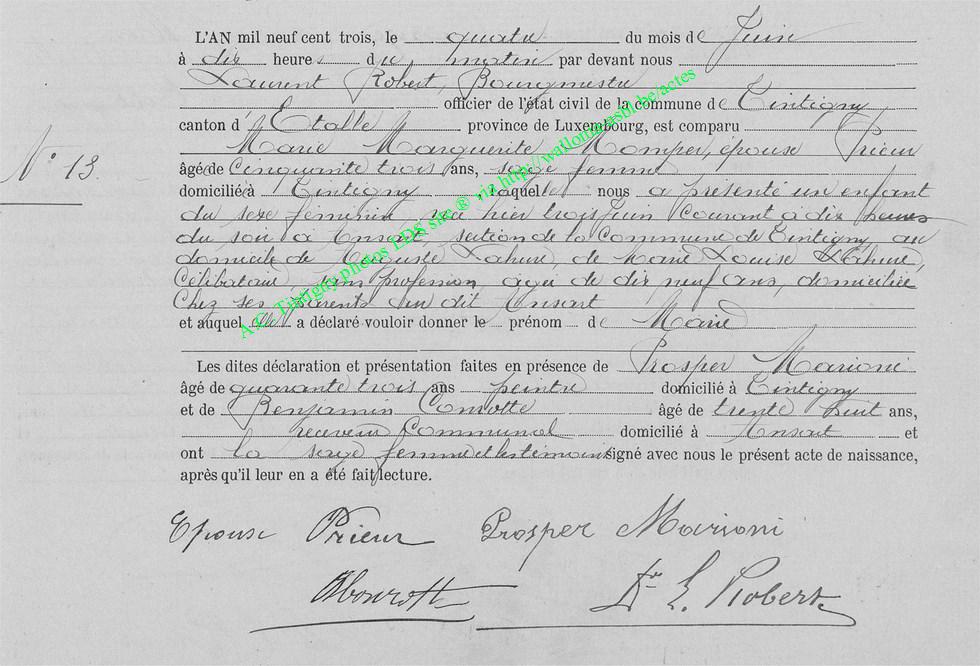 L'AN mil neuf cent trois, le quatre du mois de Juin
à dix heures du matin par devant nous
Laurent Robert, Bourgmestre
officier de l'état civil de la commune de Tintigny,
canton d'Etalle province de Luxembourg, est comparu
Marie Marguerite Momper, épouse Prieur
N° 13.
âgé de Cinquante trois ans, sage femme
domicilié à Tintigny laquelle nous a présenté un enfant
du sexe féminin, née hier trois Juin courant à dix heures
du soir à Ansart section de la Commune de Tintigny au
domicile de Lahure, de Marie Louise Lahure,
Célibataire, sans profession, agée de dix neuf ans, domiciliée
Chez ses parents au dit Ansart
et auquel elle a déclaré vouloir donner le prénom de Marie
Les dites déclaration et présentation faites en présence de Prosper Marioni
âgé de quarante trois ans peintre domicilié à Tintigny
et de Benjamin âgé de trente huit ans,
receveur Communal domicilié à Ansart et
ont la sage femme et les temoins signé avec nous le présent acte de naissance,
après qu'il leur en a été fait lecture.
Epouse Prieur Prosper Marioni
Dr L. Robert
A.C. Tintigny photos LDS site ® via http://wallonia-asbl.be/actes